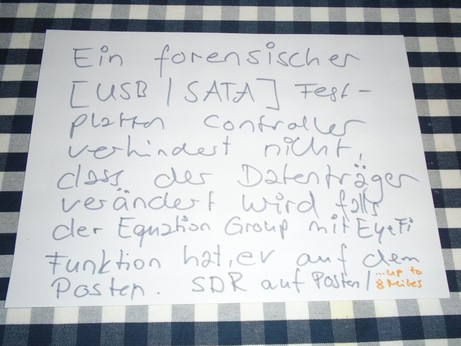 Ein forensischer
[USB | SATA] Fest-
platten Controller
verhindert nicht,
dass der Datenträger
verändert wird falls
der Equation Group mit EyeFi
Funktion hat, er auf dem
Posten. SDR auf Posten /
...up to
8 Miles